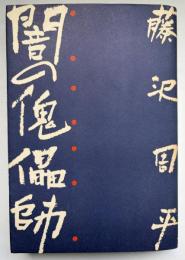 藤沢周平
闇の傀儡師